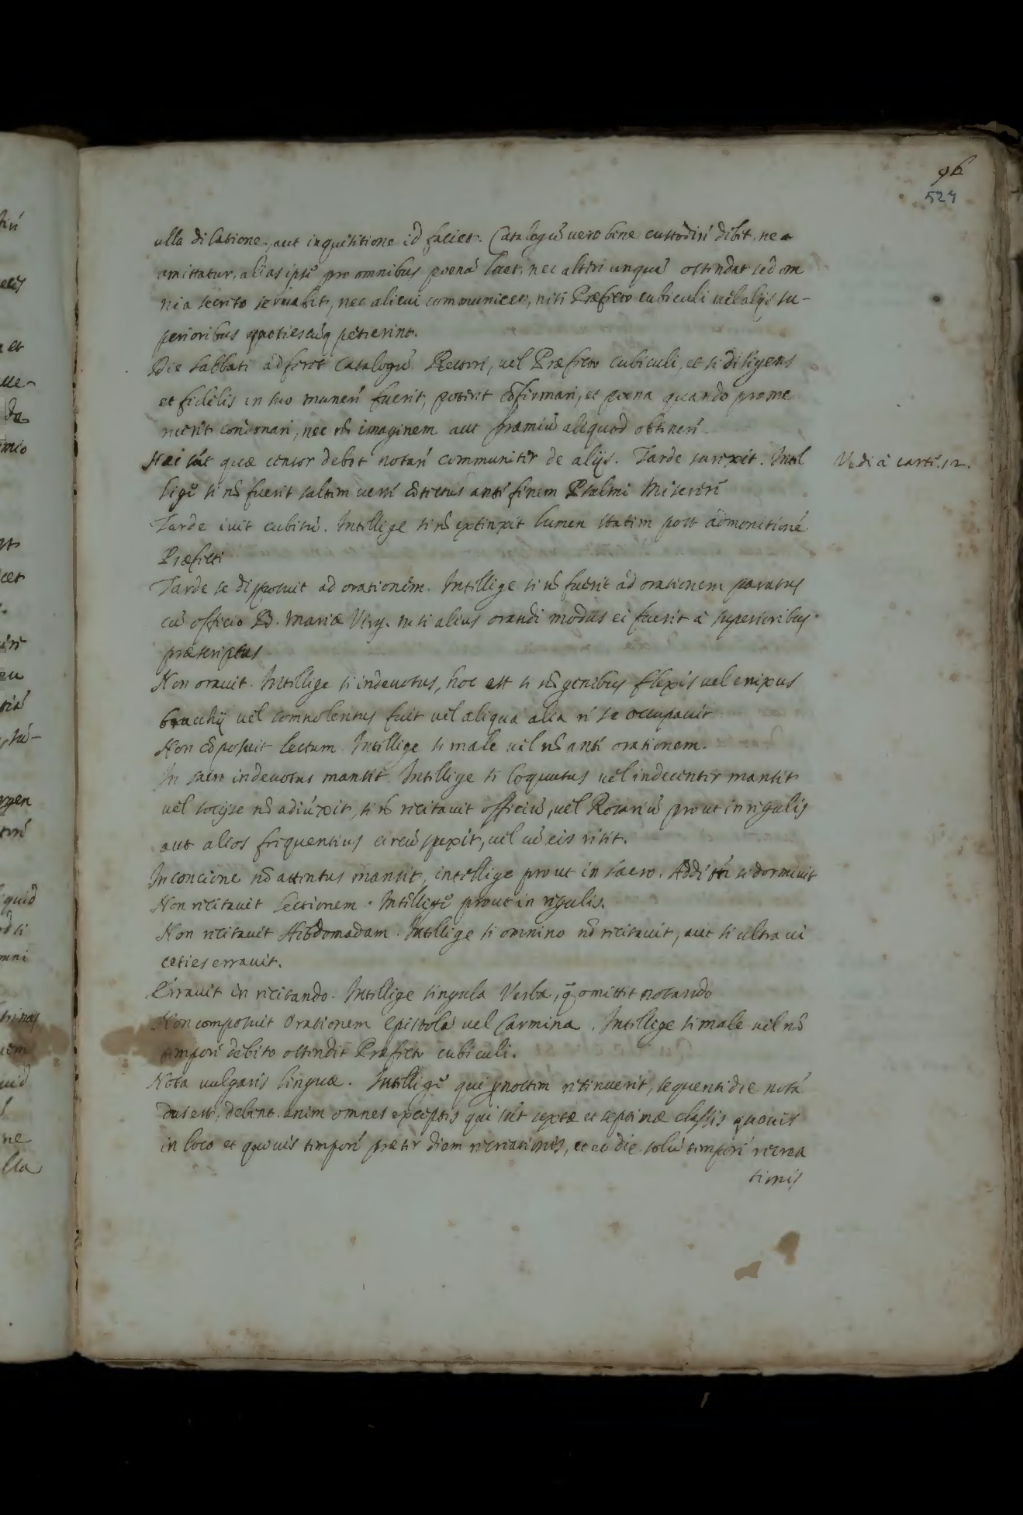 96
524
ulla dilatione, aut inquisitione id faciet. Catalogũ vero bene custodiri debet, ne
amittatur, alias ipse pro omnibus poenã luet, nec alteri unquã ostendat sed om
nia secreto servabit, nec alicui communicet, nisi Præfecto cubiculi vel alijs su-
perioribus quotiescũq petierint.
Die sabbati adferet catalogũ Rectori, vel Præfecto cubiculi, et si diligens
et fidelis in suo munere fuerit, poterit cõfirmari, et poena quando prome
ruerit condonari, nec nõ imaginem aut præmiũ aliquod obtinere.
Hæc sũt quæ censor debet notare communiter de alijs. Tarde surrexit. Intel
Vedi à carte 12.
lige si nõ fuerit saltim vesti cõtectus ante finem Psalmi Miserere
Tarde ivit cubitũ. Intellige si nõ extinxit lumen statim post admonitionẽ
Præfecti
Tarde se disposuit ad orationem. Intellige si nõ fuerit ad orationem paratus
cũ officio B. Mariæ Virg. ni si alius orandi modus ei fuerit à superioribus
præscriptus.
Non oravit. Intellige si indevotus, hoc est si nõ genibus flexis vel enixus
brachijs vel somnolentus fuit vel aliqua alia re se occupavit
Non cõposuit lectum. Intellige si male vel nõ ante orationem.
In sacro indevotus mansit. Intellige si loquutus vel indecenter mansit
vel socijs se nõ adiũxit, si nõ recitavit officiũ, vel Rosariũ prout in regulis
aut alios frequentius circũspexit, vel cũ eis risit.
In concione nõ attentus mansit, intellige prout in sacro. Adde si dormivit
Non recitavit lectionem. Intellige prout in regulis.
Non recitavit Hebdomadam. Intellige si omnino nõ recitavit, aut si ultra vi
cies erravit.
Erravit in recitando. Intellige singula Verba, q̃ omittit notando
Non composuit Orationem epistolã vel Carmina. Intellige si male vel nõ
tempore debito ostendit Præfecto cubiculi.
Nota vulgaris linguæ. Intellige qui pnoctem retinuerit, sequenti die notã
dus est, debent enim omnes exceptis qui sũt sextæ et septimæ classis quovis
in loco et quovis tempore præter diem recreationis, et eo die solũ tempore recrea
tionis